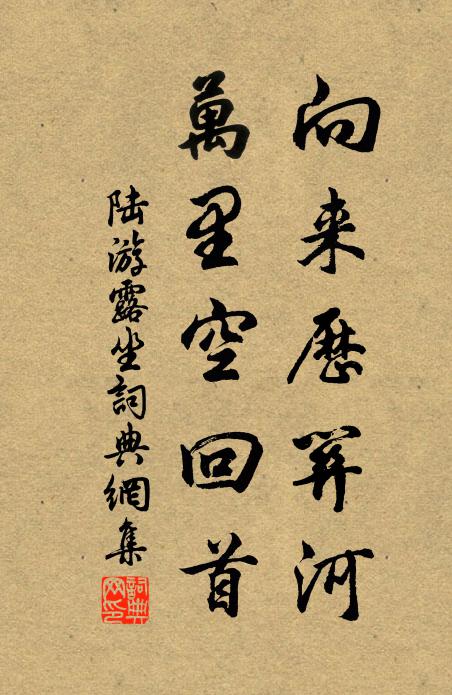 向来歷關河
萬里空回首
陆游露坐詞典網集
詞典网印